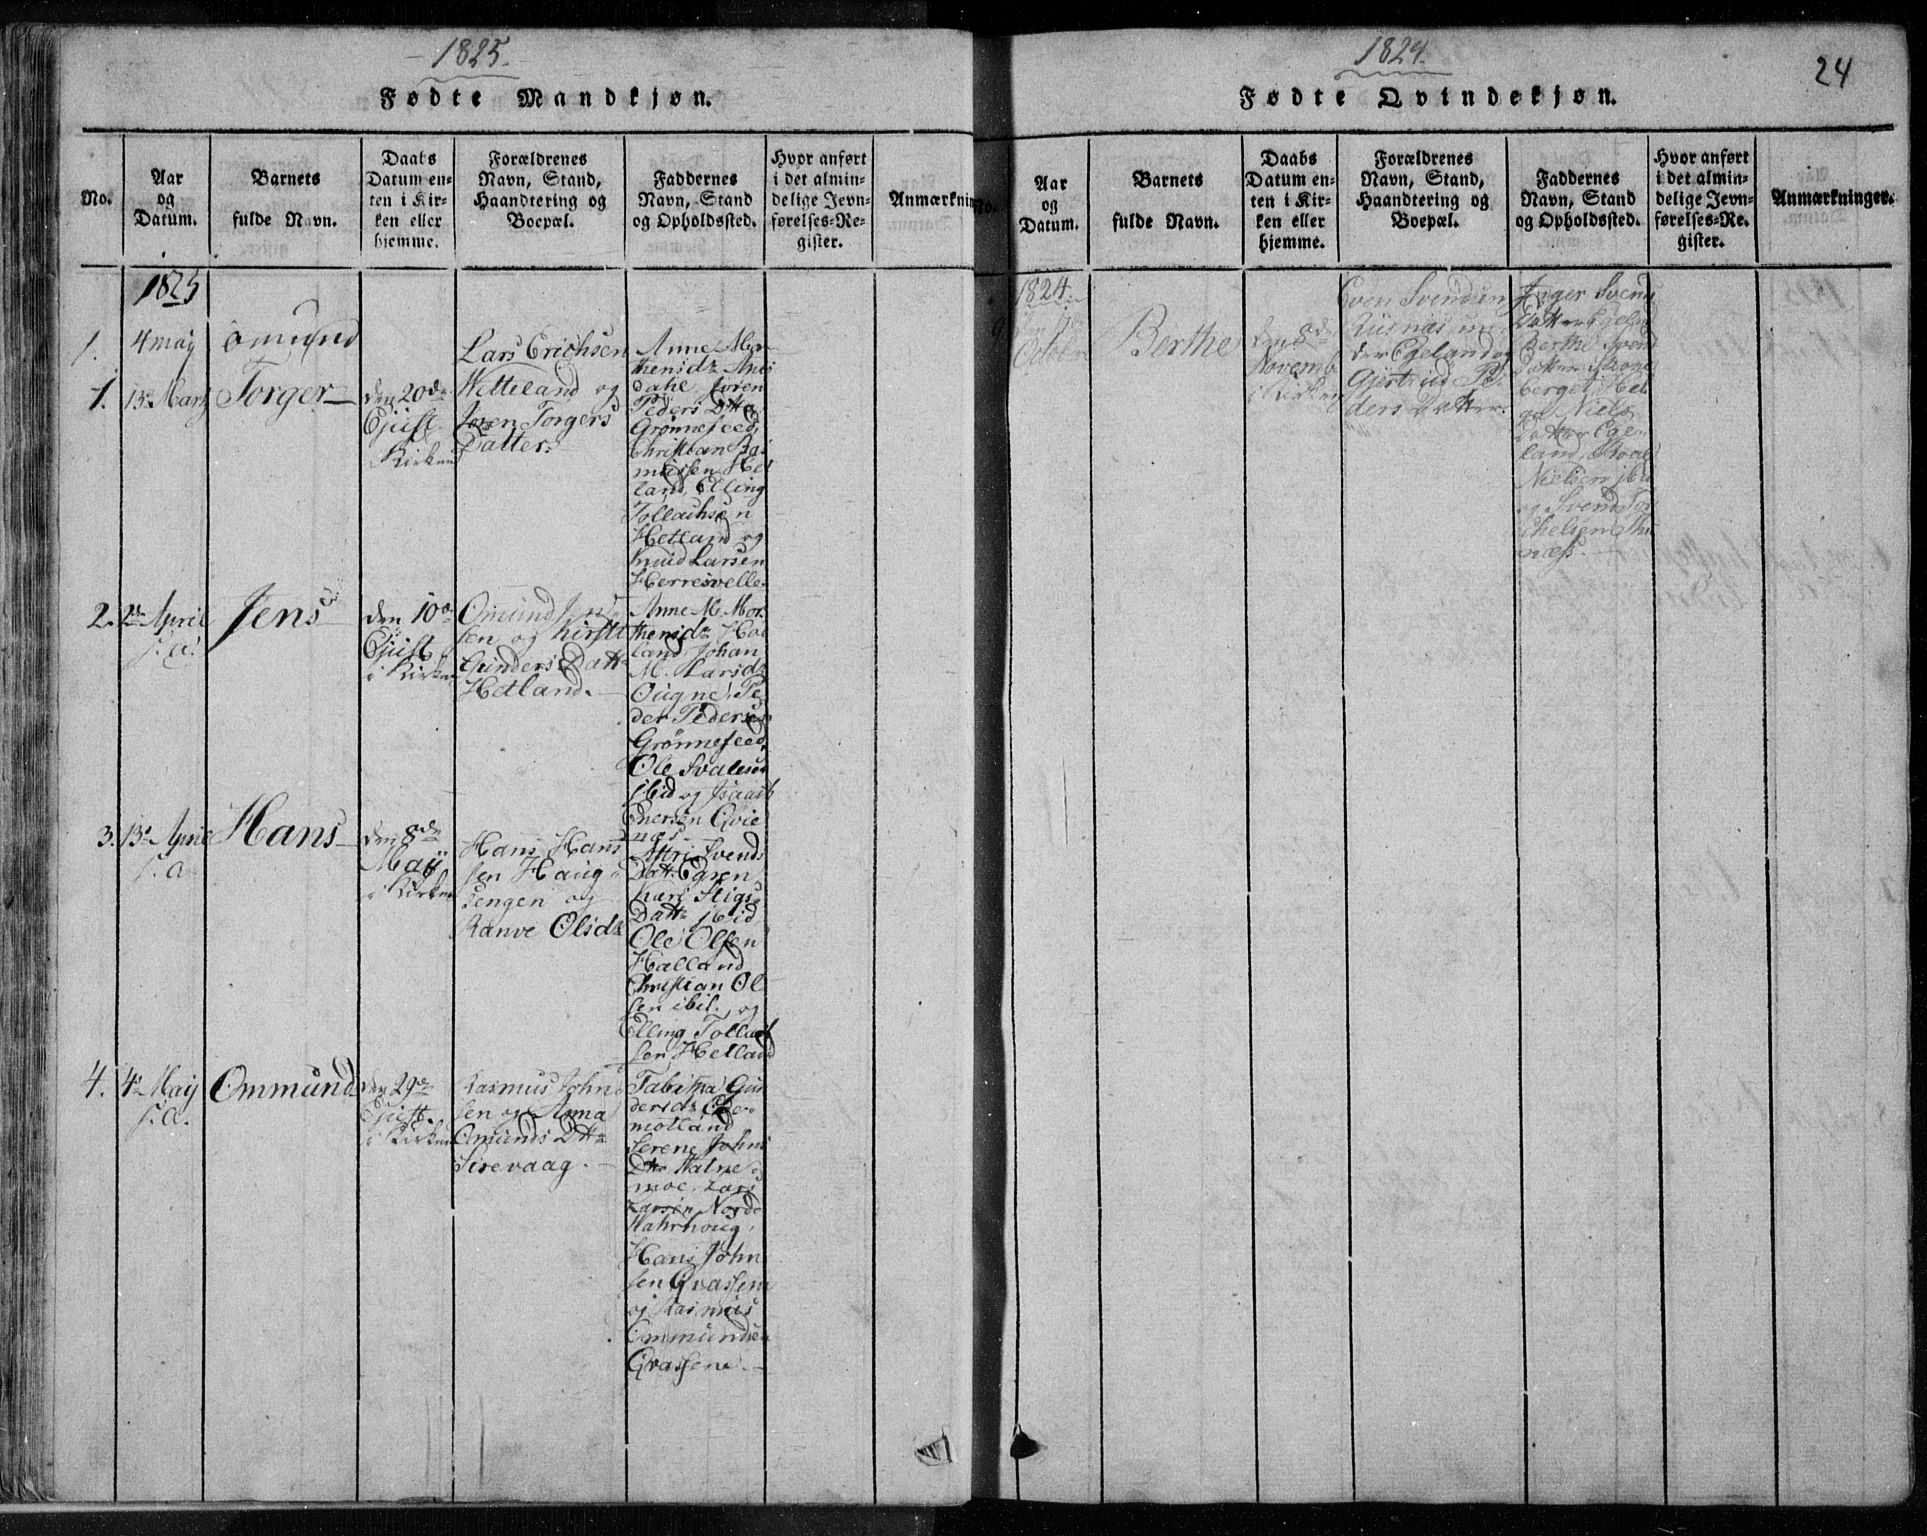 1825.
Fødte Mandkjøn.
No.
Aar
og
Datum.
Barnets
fulde Navn.
Daabs
Datum en-
ten i Kir-
ken eller
hjemme.
Forældrenes
Navn, Stand,
Haandtering og
Boepæl.
Faddernes
Navn, Stand
og Opholdssted.
Hvor anført
i det almin-
delige Jevn-
førelses-Re-
gister.
Anmærknin
1825
1. 4 may omund
1. 13de Marz Torger
den 20de
Ejust
Kirken
Lars Erichsen
Wetteland og
Torgers
Datter.
Anne Mor
thensdz
dahl Joren
Peders Dtt
Grønnefeed
Christian Ras
mussen Het
land, Elling
Tollachsen
Hetland og
Knud Larsen
Herresvelle
2. 2de April
s. a.
Jens
den 10de
Ejust
i Kirken
Omund Jen
sen og Kirsti
Gunders Datt
Hetland.
Anne M. Mor
thensdz Høl
land Johan
M. Larsdz
Ougne, Pe
der Peders
Grønnefeed,
Ole Svalesen
ibid og Isaach
Enersen Qvie
næs.
3. 13de April
s. a
Hans
den 8de
Maÿ
i Kirken
Hans Hans
sen Haug
jengen og
Ranve Olsdz
Attri Svends
Datt. Egren
Kari Stigs
Dattr ibid
Ole Olsen
Halland
Christian Ol
sen ibid. og
Elling Tollach
sen Hetland
4. 4de May
s. a.
Ommund
den 29de
Ejust.
i Kirken
Rasmus John
sen og Anna
Omunds Dtt
Sirevaag.
Tabitha Gun
dersdz
motland
Serene Johns
Dtr
moe. Lars
Larsen Nordr
Warhoug,
Hans John
sen Qvassem
og Rasmus
Ommundsen
Qvassem.
1824.
24
Fødte Qvindekjøn.
No.
Aar
og
Datum.
Barnets
fulde Navn.
Daabs
Datum en-
ten i Kir-
ken eller
hjemme.
Forældrenes
Navn, Stand,
Haandtering og
Boepæl.
Faddernes
Navn, Stand
og Opholdssted.
Hvor anført
i det almin-
delige Jevn-
førelses-Re-
gister.
Anmærkninger.
1824.
9
den
Octobr
Berthe
den 8de
Novemb
i Kirken
Even Svendsen
Rusnæs un
der Egeland og
Gjertrud Pe
ders Datter.
Inger Svends
Datter Egeland
Berthe Svend
Datter
berget, Hel
ga Niels
Datter Ege
land, Roal
Nielsen ibid
og Svend Tor
chelsen
næss.